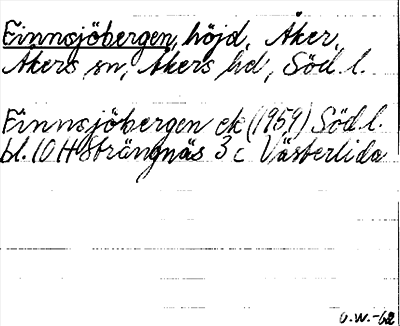 Finnsjöbergen, höjd, Åker,
Åkers sn, Åkers hd, Söd. l.
Finnsjöbergen ek (1959) Söd. l.
bl. 10 H Strängnäs 3 c Västerlida
G.W.-62